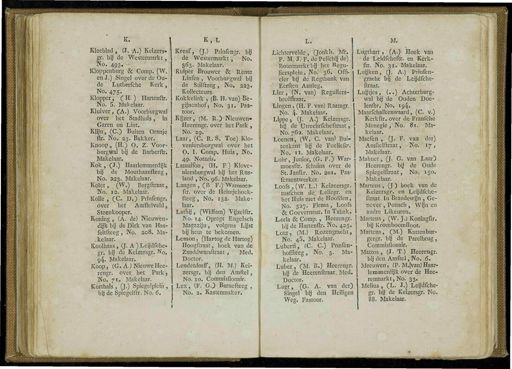 K.
Kloeblad, (J. A.) Keizers-
gr. bij de Westermarkt,
No. 493.
Kloppenburg & Comp. (W.
en J.) Singel over de Ou-
de Luthersche Kerk,
No. 475.
Klopper, (H.) Harmstr.
No. 5. Makelaar.
Kluiver, (A.) Voorburgwal
over het Stadhuis, in
Garen en Lint.
Kijn, (C.) Buiten Oranje
str. No. 23. Bakker.
Knoop, (H.) O. Z. Voor-
burgwal bij de
Makelaar.
Kok, (J.) Haarlemmerdijk
bij de Mouthaansteeg,
No. 223. Makelaar.
Koker, (W.) Bergstraat,
No. 12. Makelaar.
Kolle, (C. D.) Prinsengr.
over het Amstelveld,
Steenkooper.
Koning, (A. de) Nieuwen-
dijk bij de Dirk van Has-
seltsteeg, No. 208. Ma-
kelaar.
Kooijmans, (J. A.) Leijdsche-
gr. bij de Keizersgr. No.
94. Makelaar.
Koop, (G. A.) Nieuwe Hee-
rengr. over het Park,
No. 71. Makelaar.
Korthals, (J.) Spiegelplein
bij de Spiegelstr. No. 6.
K, L
Kreef, (J.) Prinsengr. bij
de Westermarkt, No.
363. Makelaar.
Kuiper Brouwer & Rente
Linsen, Voorburgwal bij
de Stilsteeg, No. 227.
Kollecteurs.
Kokkelink, (B. H. van) Be-
gijnenhof, No. 31. Pas-
toor.
Kijzer, (M. R.) Nieuwen-
Heerengr. over het Park,
No. 29.
Laar, (C. R. S. Toe) Klo-
veniersburgwal over het
O. I. Comp. Huis, No.
49. Notaris.
Lamaison, (B. F.) Klove-
niersburgwal bij het Rus-
land, No. 96. Makelaar.
Langen, (B F.) Warmoes-
str. over de Heintjehoek-
steeg, No. 132. Make-
laar.
Lastbij, (Willem) Vijzelstr.
No. 14. Opregt Engelsch
Magazijn, volgens Lijst
bij hem te bekomen.
Lemon, (Hartog de Hartog)
Houtstraat, hoek van de
Zandwarsstraat, Med.
Doctor.
Leudesdorff, (H. M.) Kei-
zersgr. bij den Amstel,
No. 10. Commissionair.
Lex, (F. G.) Barnesteeg
No. 2. Kastenmaker.
L.
Lichtervelde, (Jonkh. Mr.
P. M. J. F. de Pelichij de)
Botermarkt bij het Regu-
liersplein, No. 36. Offi-
cier bij de Regtbank van
Eersten Aanleg.
Lier, (N. van) Reguliers-
breedstraat.
Lingen, (H. F. van) Rozengr.
No. 4. Makelaar.
Lippe, (J. A.) Keizersgr.
bij de Utrechtschestraat,
No. 762. Makelaar.
Loenen, (W. C. van) Pak-
tenkant bij de Foeliestr.
No. 11. Makelaar.
Lohr, Junior, (G. F.) War-
moesstr. schuins over de
St. Janstr. No. 201. Pas-
sementwerker.
Loofs, (W. L.) Keizersgr.
tusschen de Leliegr. en
het Huis met de Hoofden,
No. 527. Firma, Loofs
& Goevertneur. In Taback.
Loofs & Comp. Heerengr.
bij de Hartenstr. No. 425.
Lotz, (M.) Rozengracht,
No. 46. Makelaar.
Lubarti, (C.) Prinsen-
hofsteeg, No. 5. Ma-
kelaar.
Luber, (M. R.) Heerengr.
bij de Heerenstraat, Med.
Doctor.
Lugt, (G. A. van der)
Singel bij den Heiligen
Weg. Pastoor.
M.
Lugthart, (A.) Hoek van
de Leidschestr. en Kerk-
str. No. 31. Makelaar.
Luijken, (J. A.) Prinsen-
gracht bij de Leijdsche-
straat.
Luijtjes, (..) Achterburg-
wal bij de Ouden Doe-
lenstr. No. 196.
Maarschalkerwaard, (C. v.)
Kerkstr. over de Fransche
Menagie, No. 81. Ma-
kelaar.
Maesen, (J. F. van der)
Amstelstraat, No. 17.
Makelaar.
Mahuet, (J. G. van Laar)
Heerengr. bij de Oude
Spiegelstraat, No. 150.
Makelaar.
Martens, (J) hoek van de
Keizersgr. en Leijdsche-
straat. In Brandewijn, Ge-
never, Punsch, Wijn en
ander Likeuren.
Martens, (W. J.) Koningstr.
bij Krombomssloot.
Martens, (M.) Kattenbur-
gergr. bij de Parelbrug,
Commissionair.
Matton, (J. T.) Heerengr.
bij den Amstel, No. 6.
Meeuwen, (P. M. van) Haar-
lemmerdijk over de Hee-
renmarkt, No. 33.
Melius, (L. J.) Leijdsche-
gr. bij de Keizersgr. No.
88. Makelaar.